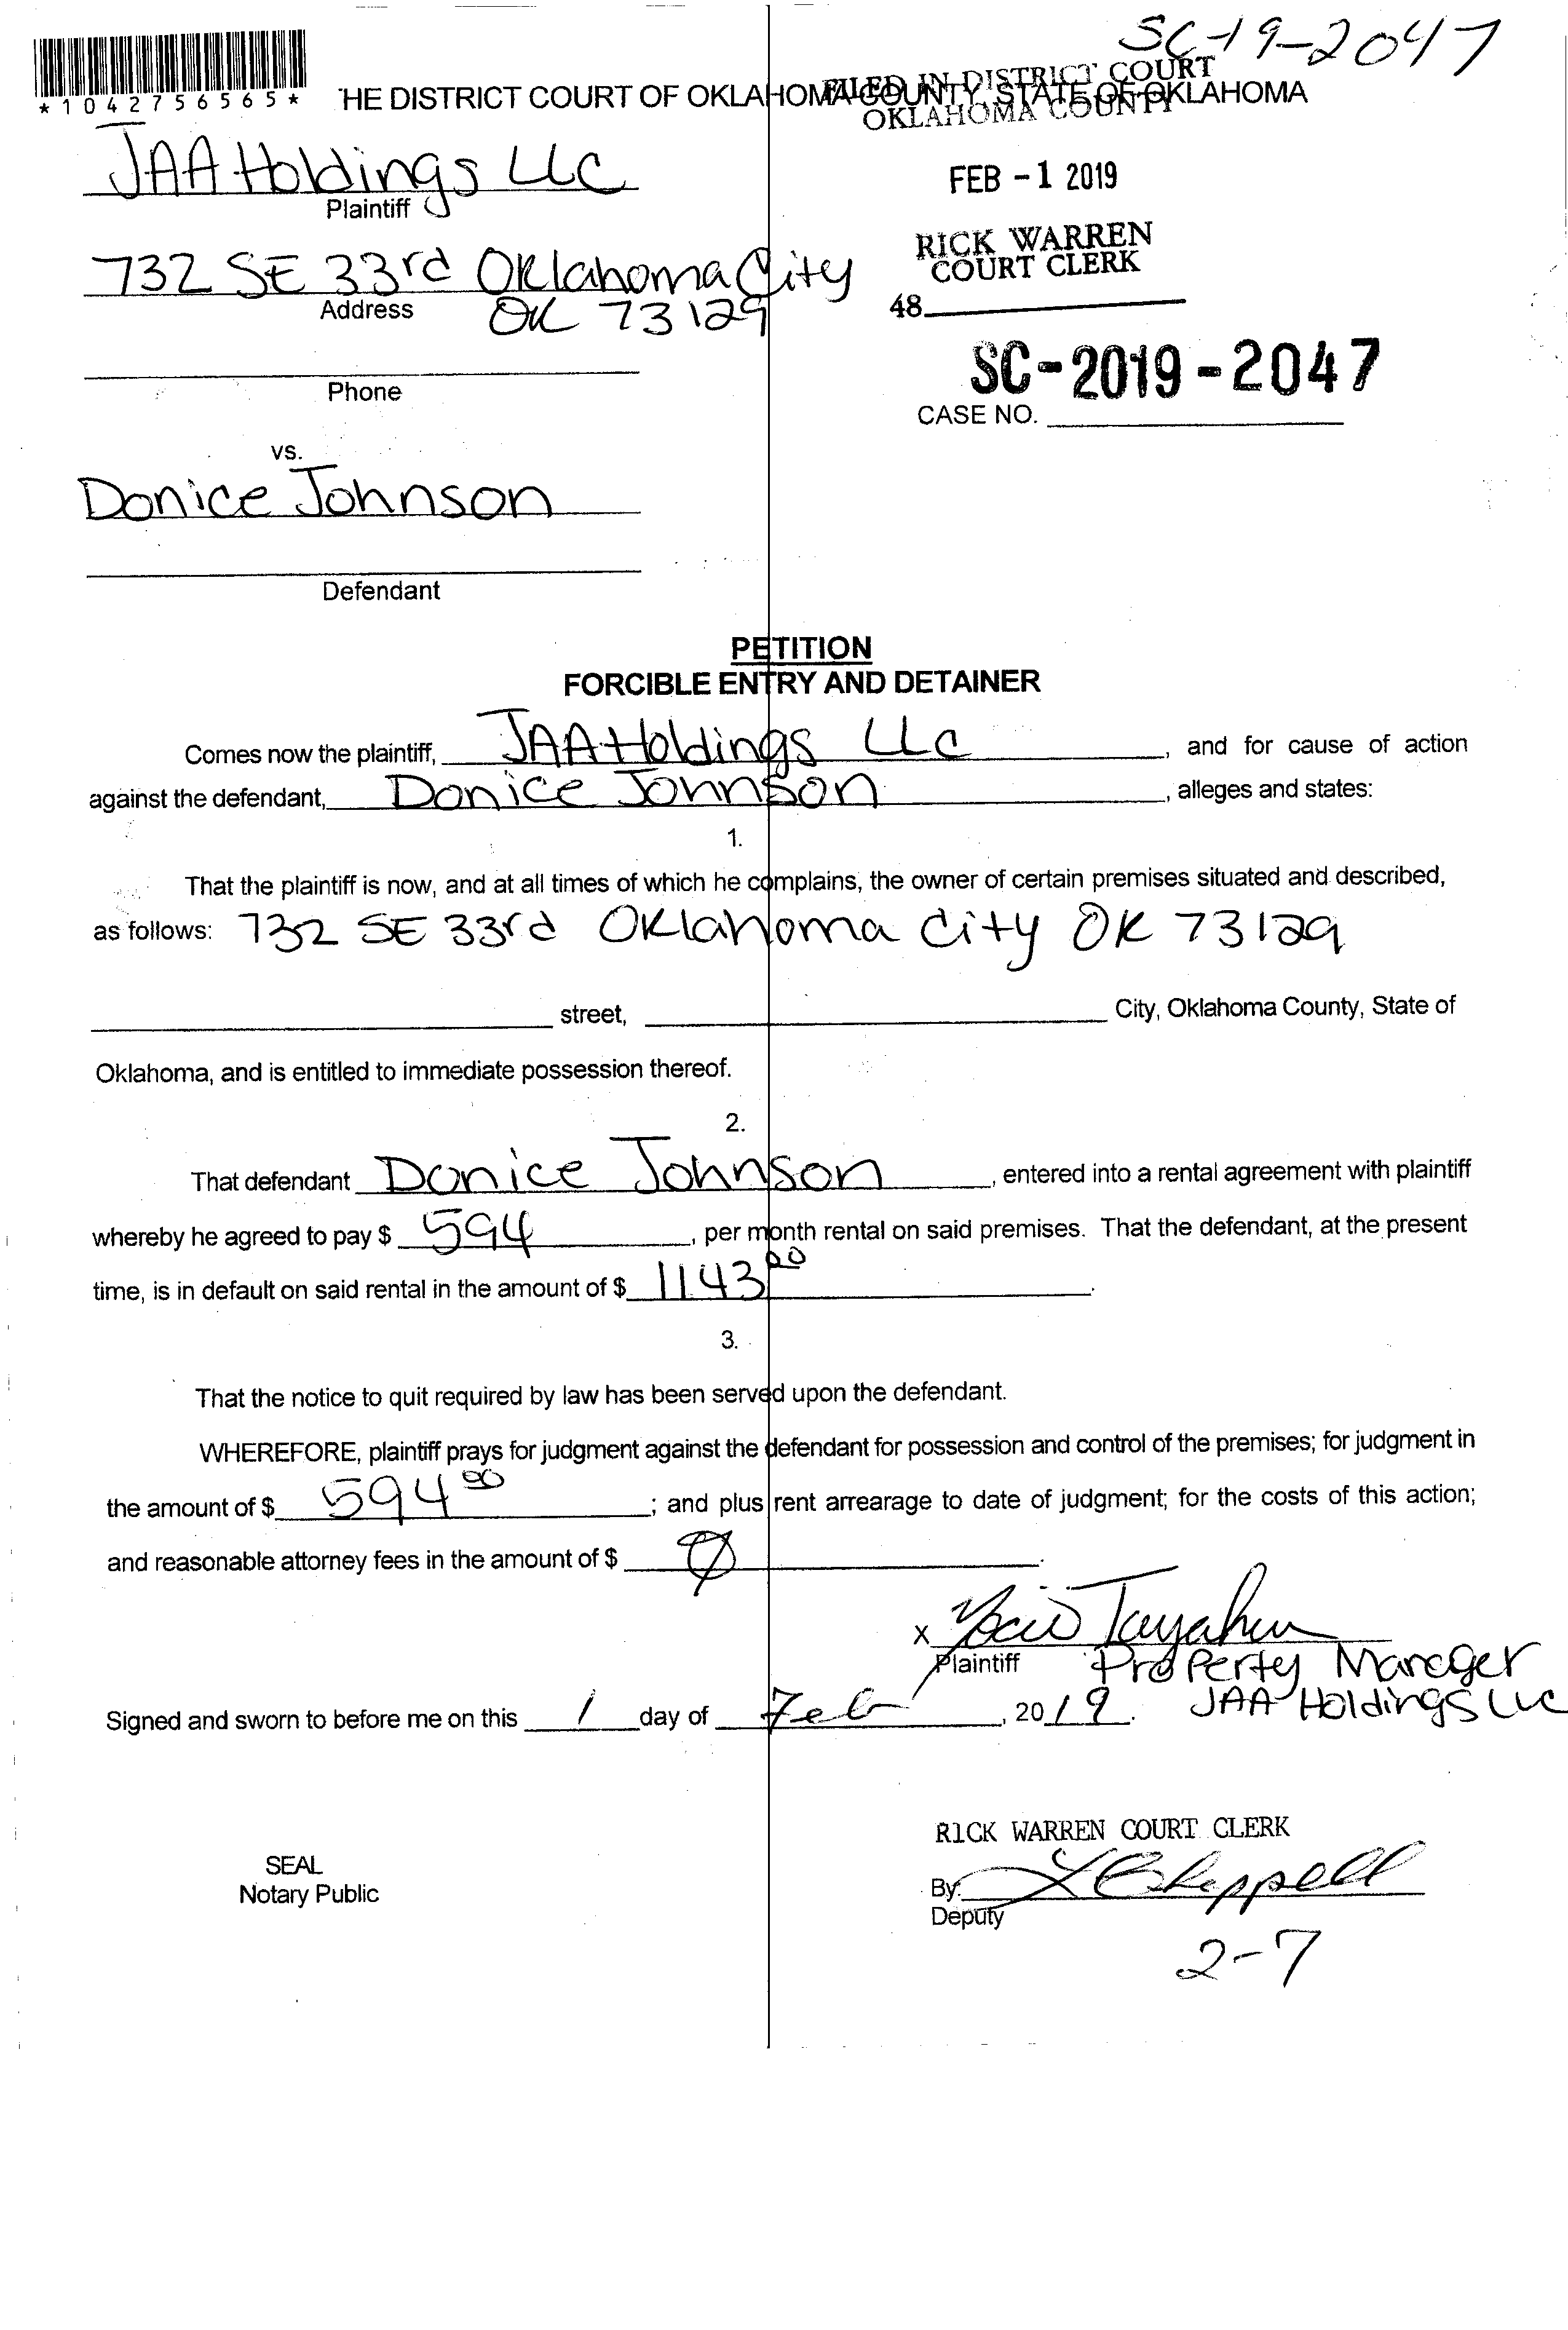 SC-19-2047
*1042756565*
HE DISTRICT COURT OF OKLAHOMA COUNTY, STATE OF OKLAHOMA
FILED IN DISTRICT COURT
OKLAHOMA COUNTY
JAA Holdings LLC
Plaintiff
FEB -1 2019
RICK WARREN
COURT CLERK
732 SE 33rd Oklahoma City
Address
OK 73129
48
Phone
SC-2019-2047
CASE NO.
vs.
Donice Johnson
Defendant
PETITION
FORCIBLE ENTRY AND DETAINER
Comes now the plaintiff, JAA Holdings LLC, and for cause of action
against the defendant, Donice Johnson, alleges and states:
1.
That the plaintiff is now, and at all times of which he complains, the owner of certain premises situated and described,
as follows: 732 SE 33rd Oklahoma City OK 73129
street, City, Oklahoma County, State of
Oklahoma, and is entitled to immediate possession thereof.
2.
That defendant Donice Johnson, entered into a rental agreement with plaintiff
whereby he agreed to pay $ 594, per month rental on said premises. That the defendant, at the present
time, is in default on said rental in the amount of $ 1143 00.
3.
That the notice to quit required by law has been served upon the defendant.
WHEREFORE, plaintiff prays for judgment against the defendant for possession and control of the premises; for judgment in
the amount of $ 594 00; and plus rent arrearage to date of judgment; for the costs of this action;
and reasonable attorney fees in the amount of $ Ø.
X
Plaintiff Property Manager
Signed and sworn to before me on this 1 day of Feb, 2019. JAA Holdings LLC
RICK WARREN COURT CLERK
SEAL
Notary Public
By:
Deputy
2-7